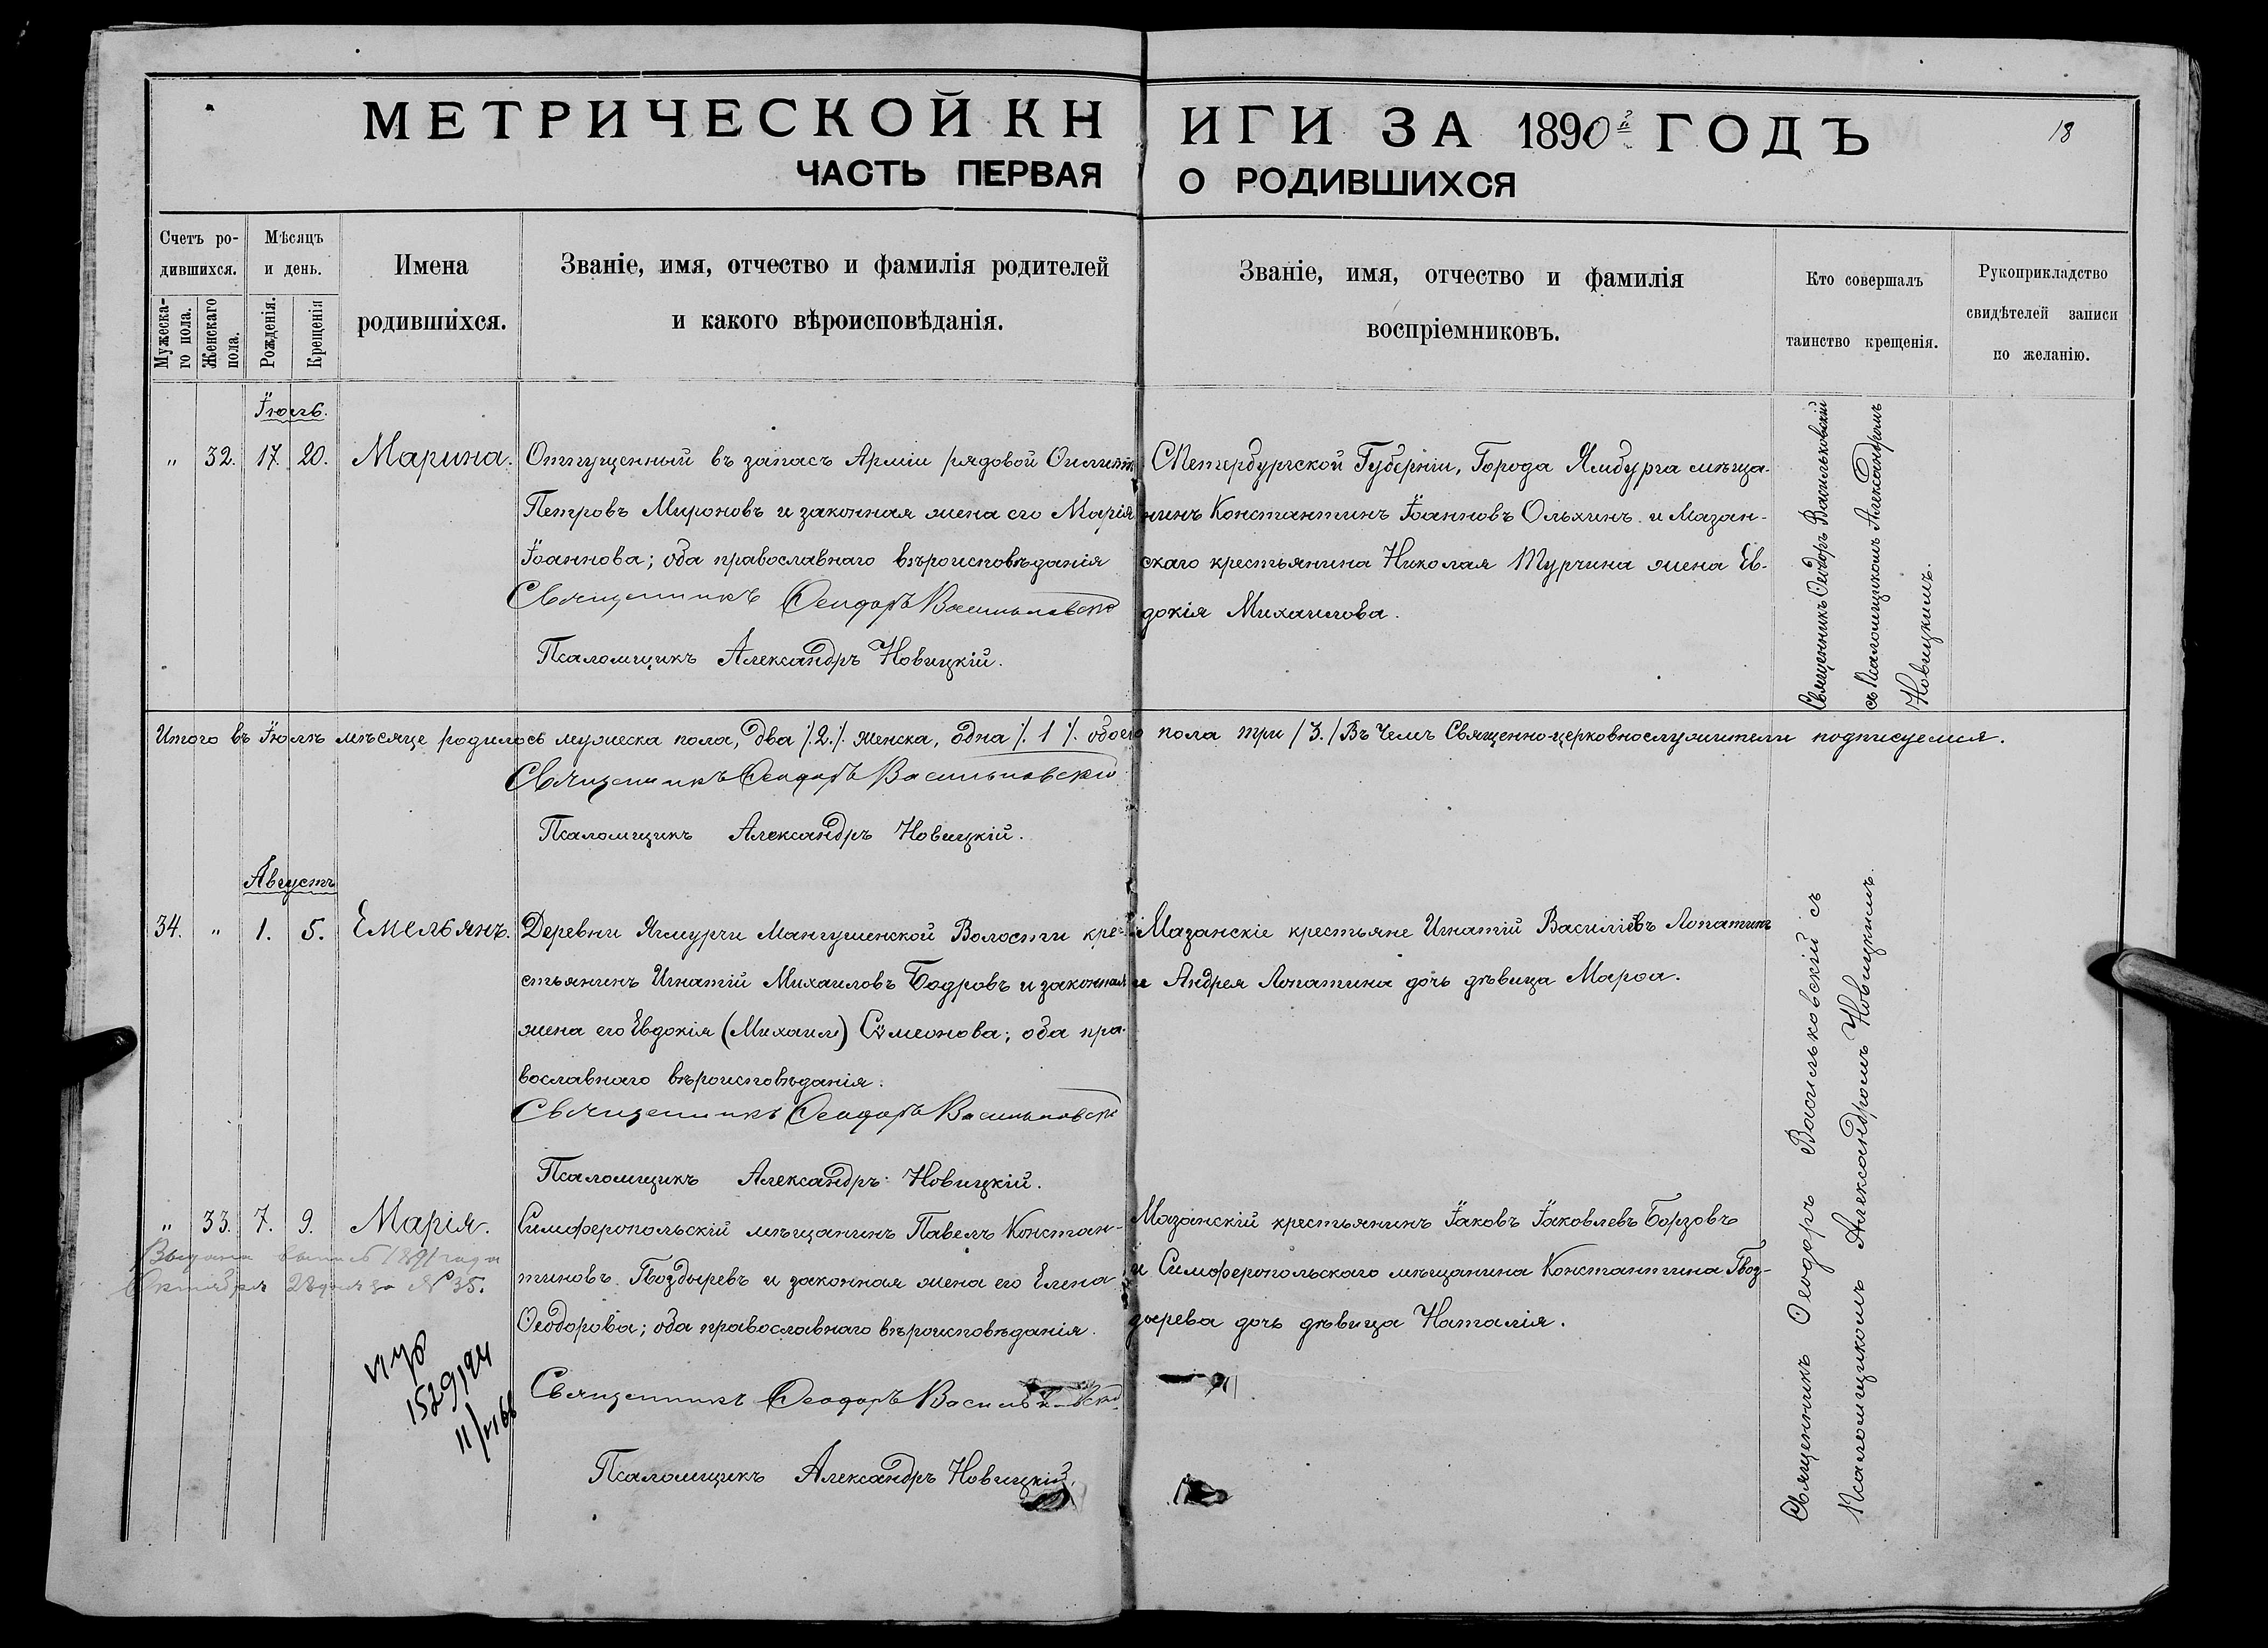 МЕТРИЧЕСКОЙ КНИГИ ЗА 1890й ГОДЪ
18
ЧАСТЬ ПЕРВАЯ О РОДИВШИХСЯ
Счетъ ро-
дившихся.
Мужеска-
го пола.
Женскаго
пола.
Мѣсяцъ
и день.
Рожденія.
Крещенія
Имена
родившихся.
Званіе, имя, отчество и фамилія родителей
и какого вѣроисповѣданія.
Званіе, имя, отчество и фамилія
воспріемниковъ.
Кто совершалъ
таинство крещенія.
Рукоприкладство
свидѣтелей записи
по желанію.
Іюль.
" 32. 17. 20. Марина.
Отпущенный въ запасъ Арміи рядовой
Петровъ Мироновъ и законная жена его Марія
Іоаннова; оба православнаго вѣроисповѣданія
Священникъ Ѳеодоръ Васильковскій
Псаломщикъ Александръ Новицкій.
СПетербургской Губерніи, Города Ямбурга мѣща-
нинъ Константинъ Іоанновъ Ольхинъ и Мазан-
скаго крестьянина Николая Турчина жена Ев-
докія Михаилова.
Священникъ Ѳеодоръ Васильковскій
съ Псаломщикомъ Александромъ
Новицкимъ.
Итого въ Іюлѣ мѣсяце родилось мужеска пола, два /.2./. женска, одна /. 1 /. обоего пола три /3./ Въ чемъ Священно-церковнослужители подписуемся.
Священникъ Ѳеодоръ Васильковскій
Псаломщикъ Александръ Новицкій.
Августъ
34. " 1. 5. Емельянъ.
Деревни Ягмурчи Мангушенской Волости кре-
стьянинъ Игнатій Михаиловъ Бодровъ и законная
жена его Евдокія (Михаил) Сѵмеонова; оба пра-
вославнаго вѣроисповѣданія.
Священникъ Ѳеодоръ Васильковскій
Псаломщикъ Александръ Новицкій.
Мазанскіе крестьяне Игнатій Василіевъ Лопатинъ
и Андрея Лопатина дочь дѣвица Марѳа.
" 33. 7. 9. Марія.
Выдана выпись 1891 года
Октября 28 дня за № 35.
Симферопольскій мѣщанинъ Павелъ Констан-
тиновъ Гвоздыревъ и законная жена его Елена
Ѳеодорова; оба православнаго вѣроисповѣданія.
Священникъ Ѳеодоръ Васильковскій
Псаломщикъ Александръ Новицкій.
Мазанскій крестьянинъ Іаковъ Іаковлевъ Борзовъ
и Симферопольскаго мѣщанина Константина Гвоз-
дырева дочь дѣвица Наталія.
Священникъ Ѳеодоръ Васильковскій съ
Псаломщикомъ Александромъ Новицкимъ.